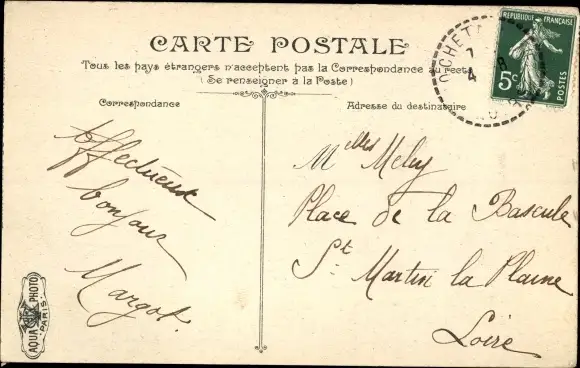 CARTE POSTALE
Tous les pays étrangers n'acceptent pas la Correspondance au recto
(Se renseigner à la Poste)
Correspondance
Adresse du destinataire
REPUBLIQUE FRANÇAISE
5c
POSTES
7
8
4
Affectueux
bonjour
Margot.
Melles Meley
Place de la Bascule
St. Martin la Plaine
Loire
AQUA PHOTO
PARIS